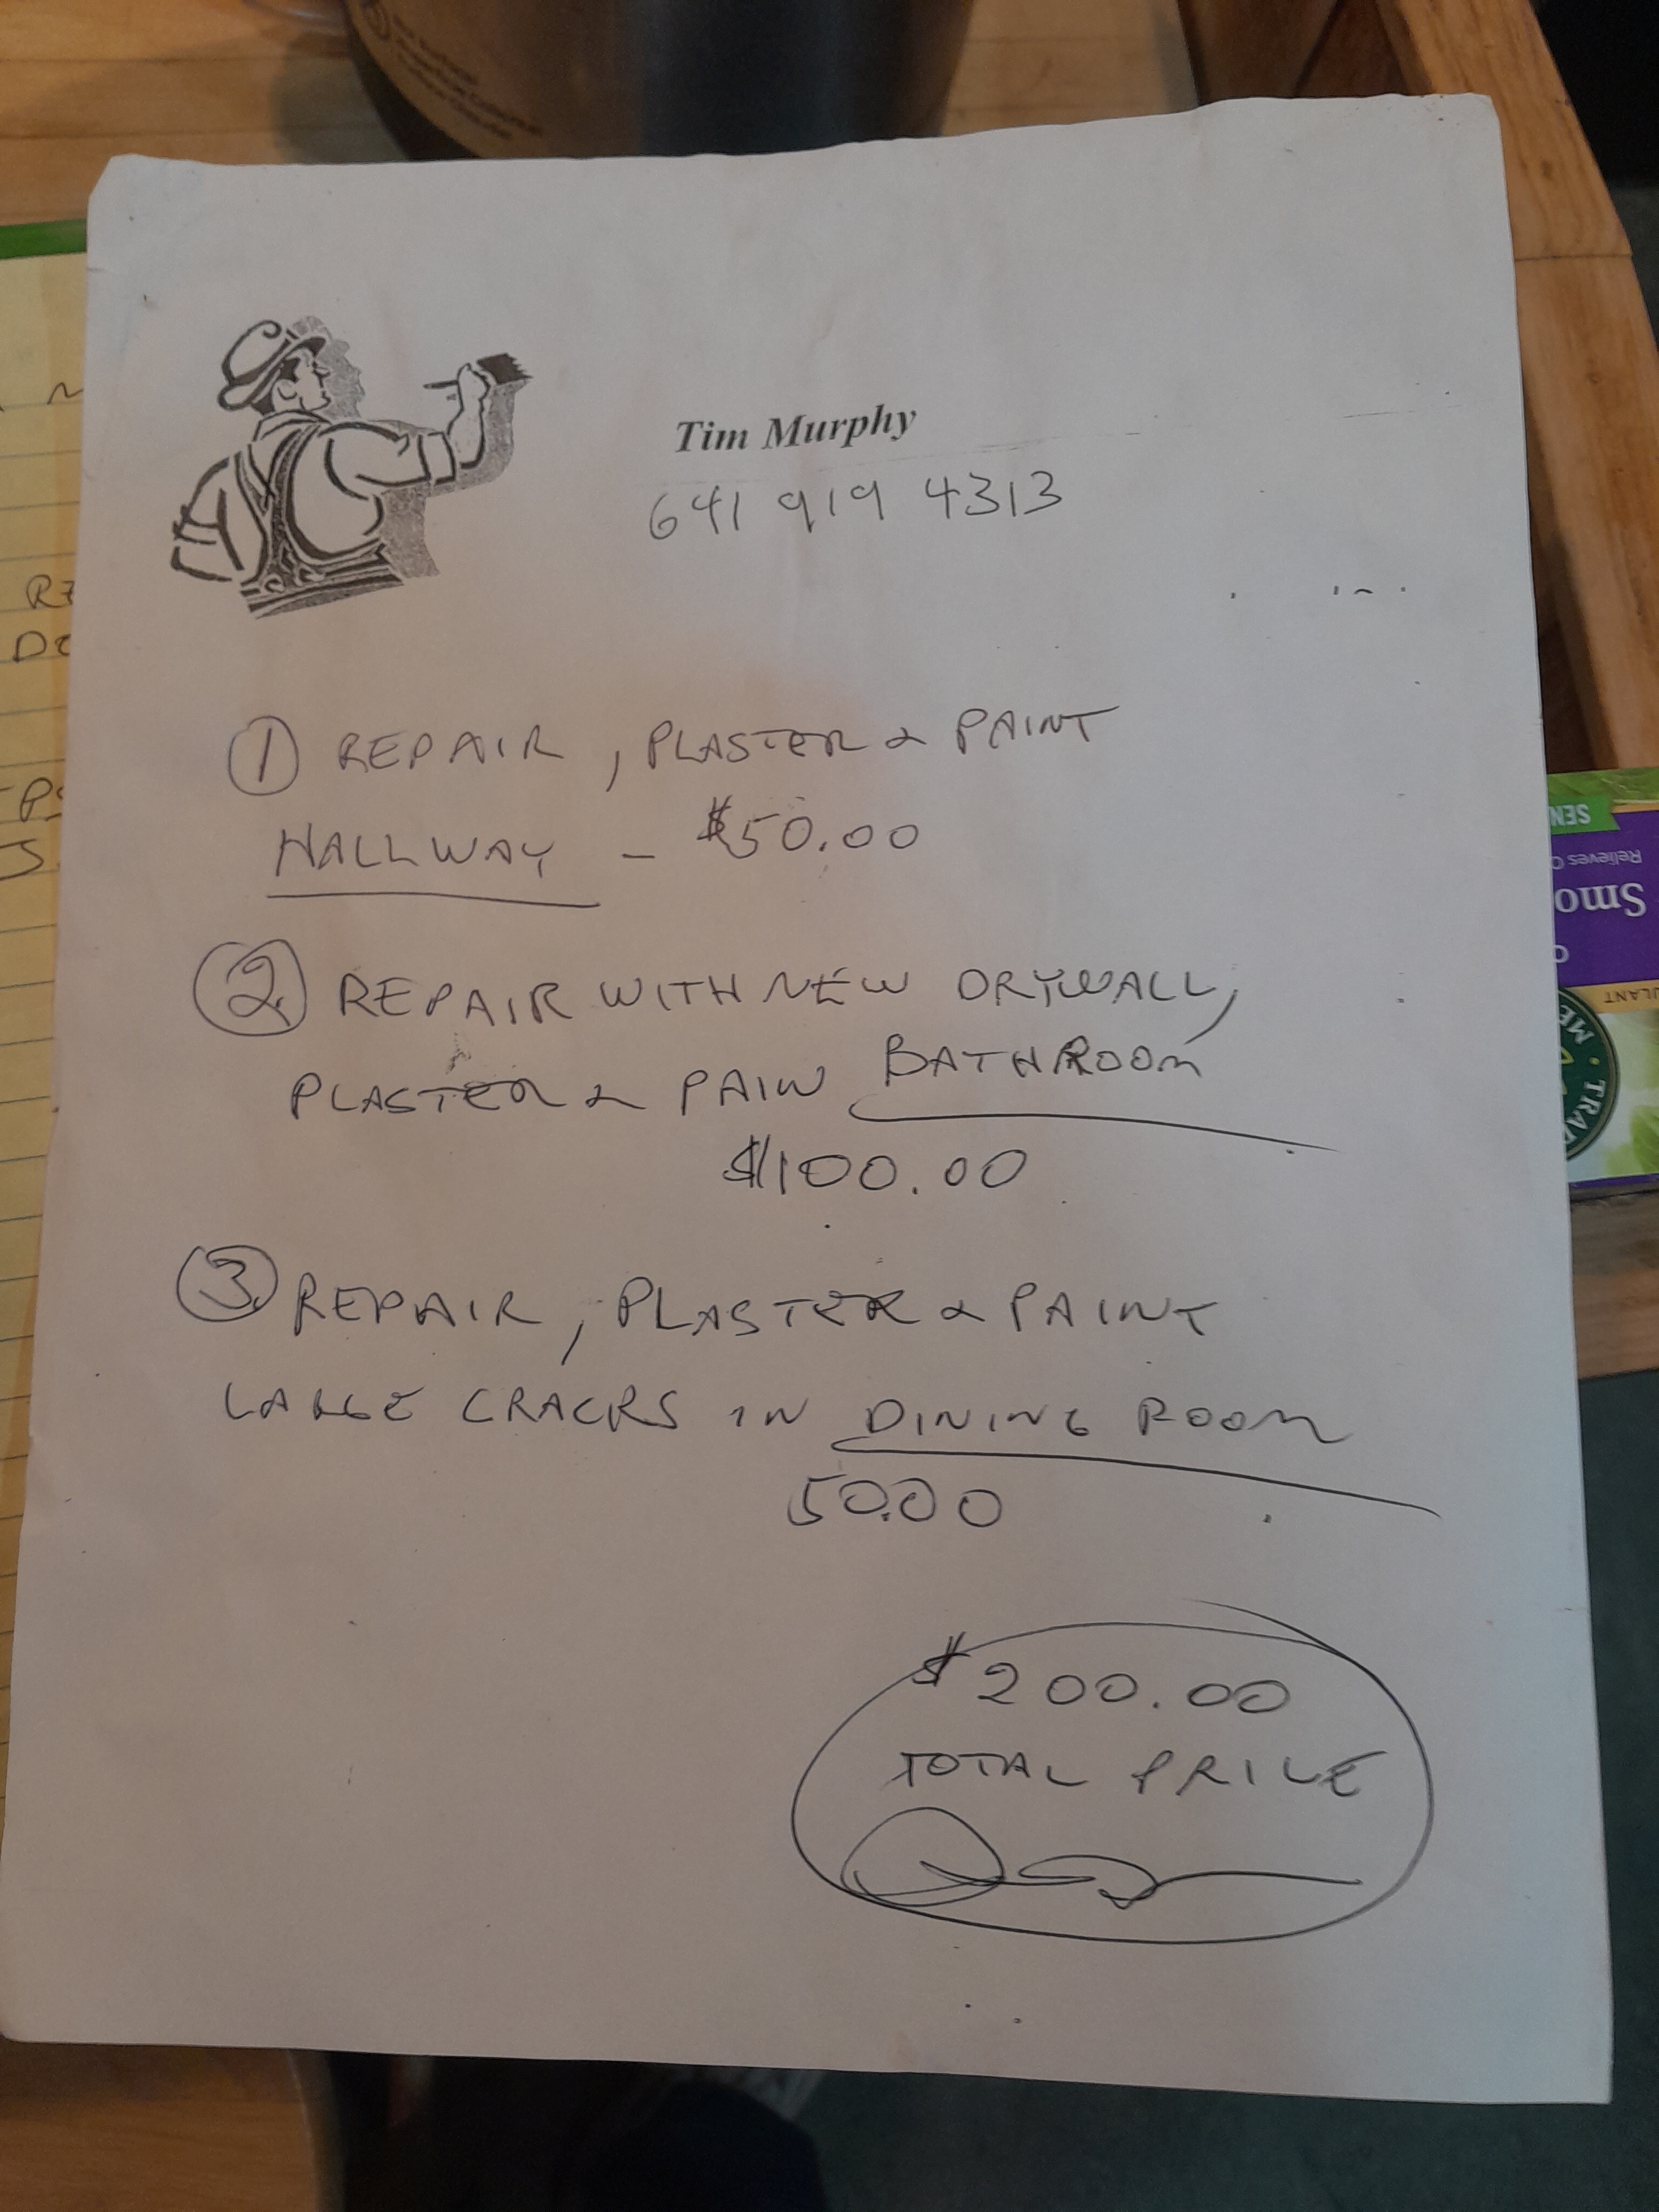 Tim Murphy
641 919 4313
1 REPAIR, PLASTER & PAINT
HALLWAY - $50.00
2. REPAIR WITH NEW DRYWALL,
PLASTER & PAIN BATHROOM
$100.00
3. REPAIR, PLASTER & PAINT
LARGE CRACKS IN DINING ROOM
50.00
$200.00
TOTAL PRICE
SEN
Relieves
Smo
ULANT
TRAD
ME